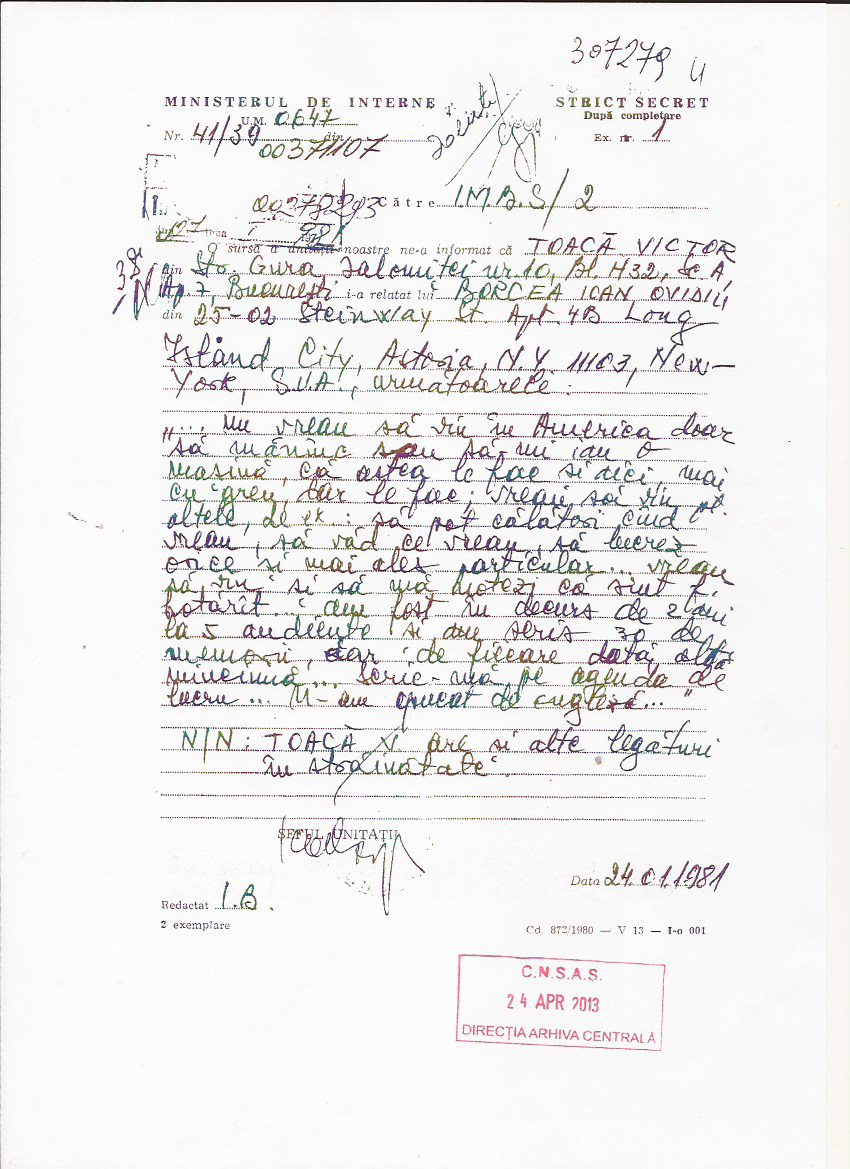 307279
4
MINISTERUL DE INTERNE
STRICT SECRET
U.M. 0647
După completare
Nr. 41/39 din
Ex. nr. 1
00371107
00278293
Către I.M.B.S/2
O sursă a unității noastre ne-a informat că TOACĂ VICTOR
din Str. Gura Ialomiței nr. 10, Bl. M32, Sc. A,
Ap. 7, București i-a relatat lui BORCEA IOAN OVIDIU
din 25-02 Steinway St. Apt. 4B Long
Island City, Astoria, N.Y. 11103, New-
York, S.U.A., următoarele:
„... nu vreau să vin în America doar
să mănînc sau să-mi iau o
mașină, că astea le fac și aici, mai
cu greu, dar le fac; vreau să vin pt.
altele, de ex.: să pot călători cînd
vreau, să văd ce vreau, să lucrez
orice și mai ales particular... vreau
să vin și să mă botez, că sînt
hotărît... am fost în decurs de 2 luni
la 5 audiențe și am scris 30 de
memorii, dar de fiecare dată altă
minciună... Scrie-mă pe agenda de
lucru... M-am apucat de engleză..."
N/N: TOACĂ V. are și alte legături
în străinătate.
ȘEFUL UNITĂȚII
Data 24.01.1981
Redactat I.B.
2 exemplare
Cd. 872/1980 — V 13 — I-o 001
C.N.S.A.S.
24 APR 2013
DIRECȚIA ARHIVA CENTRALĂ